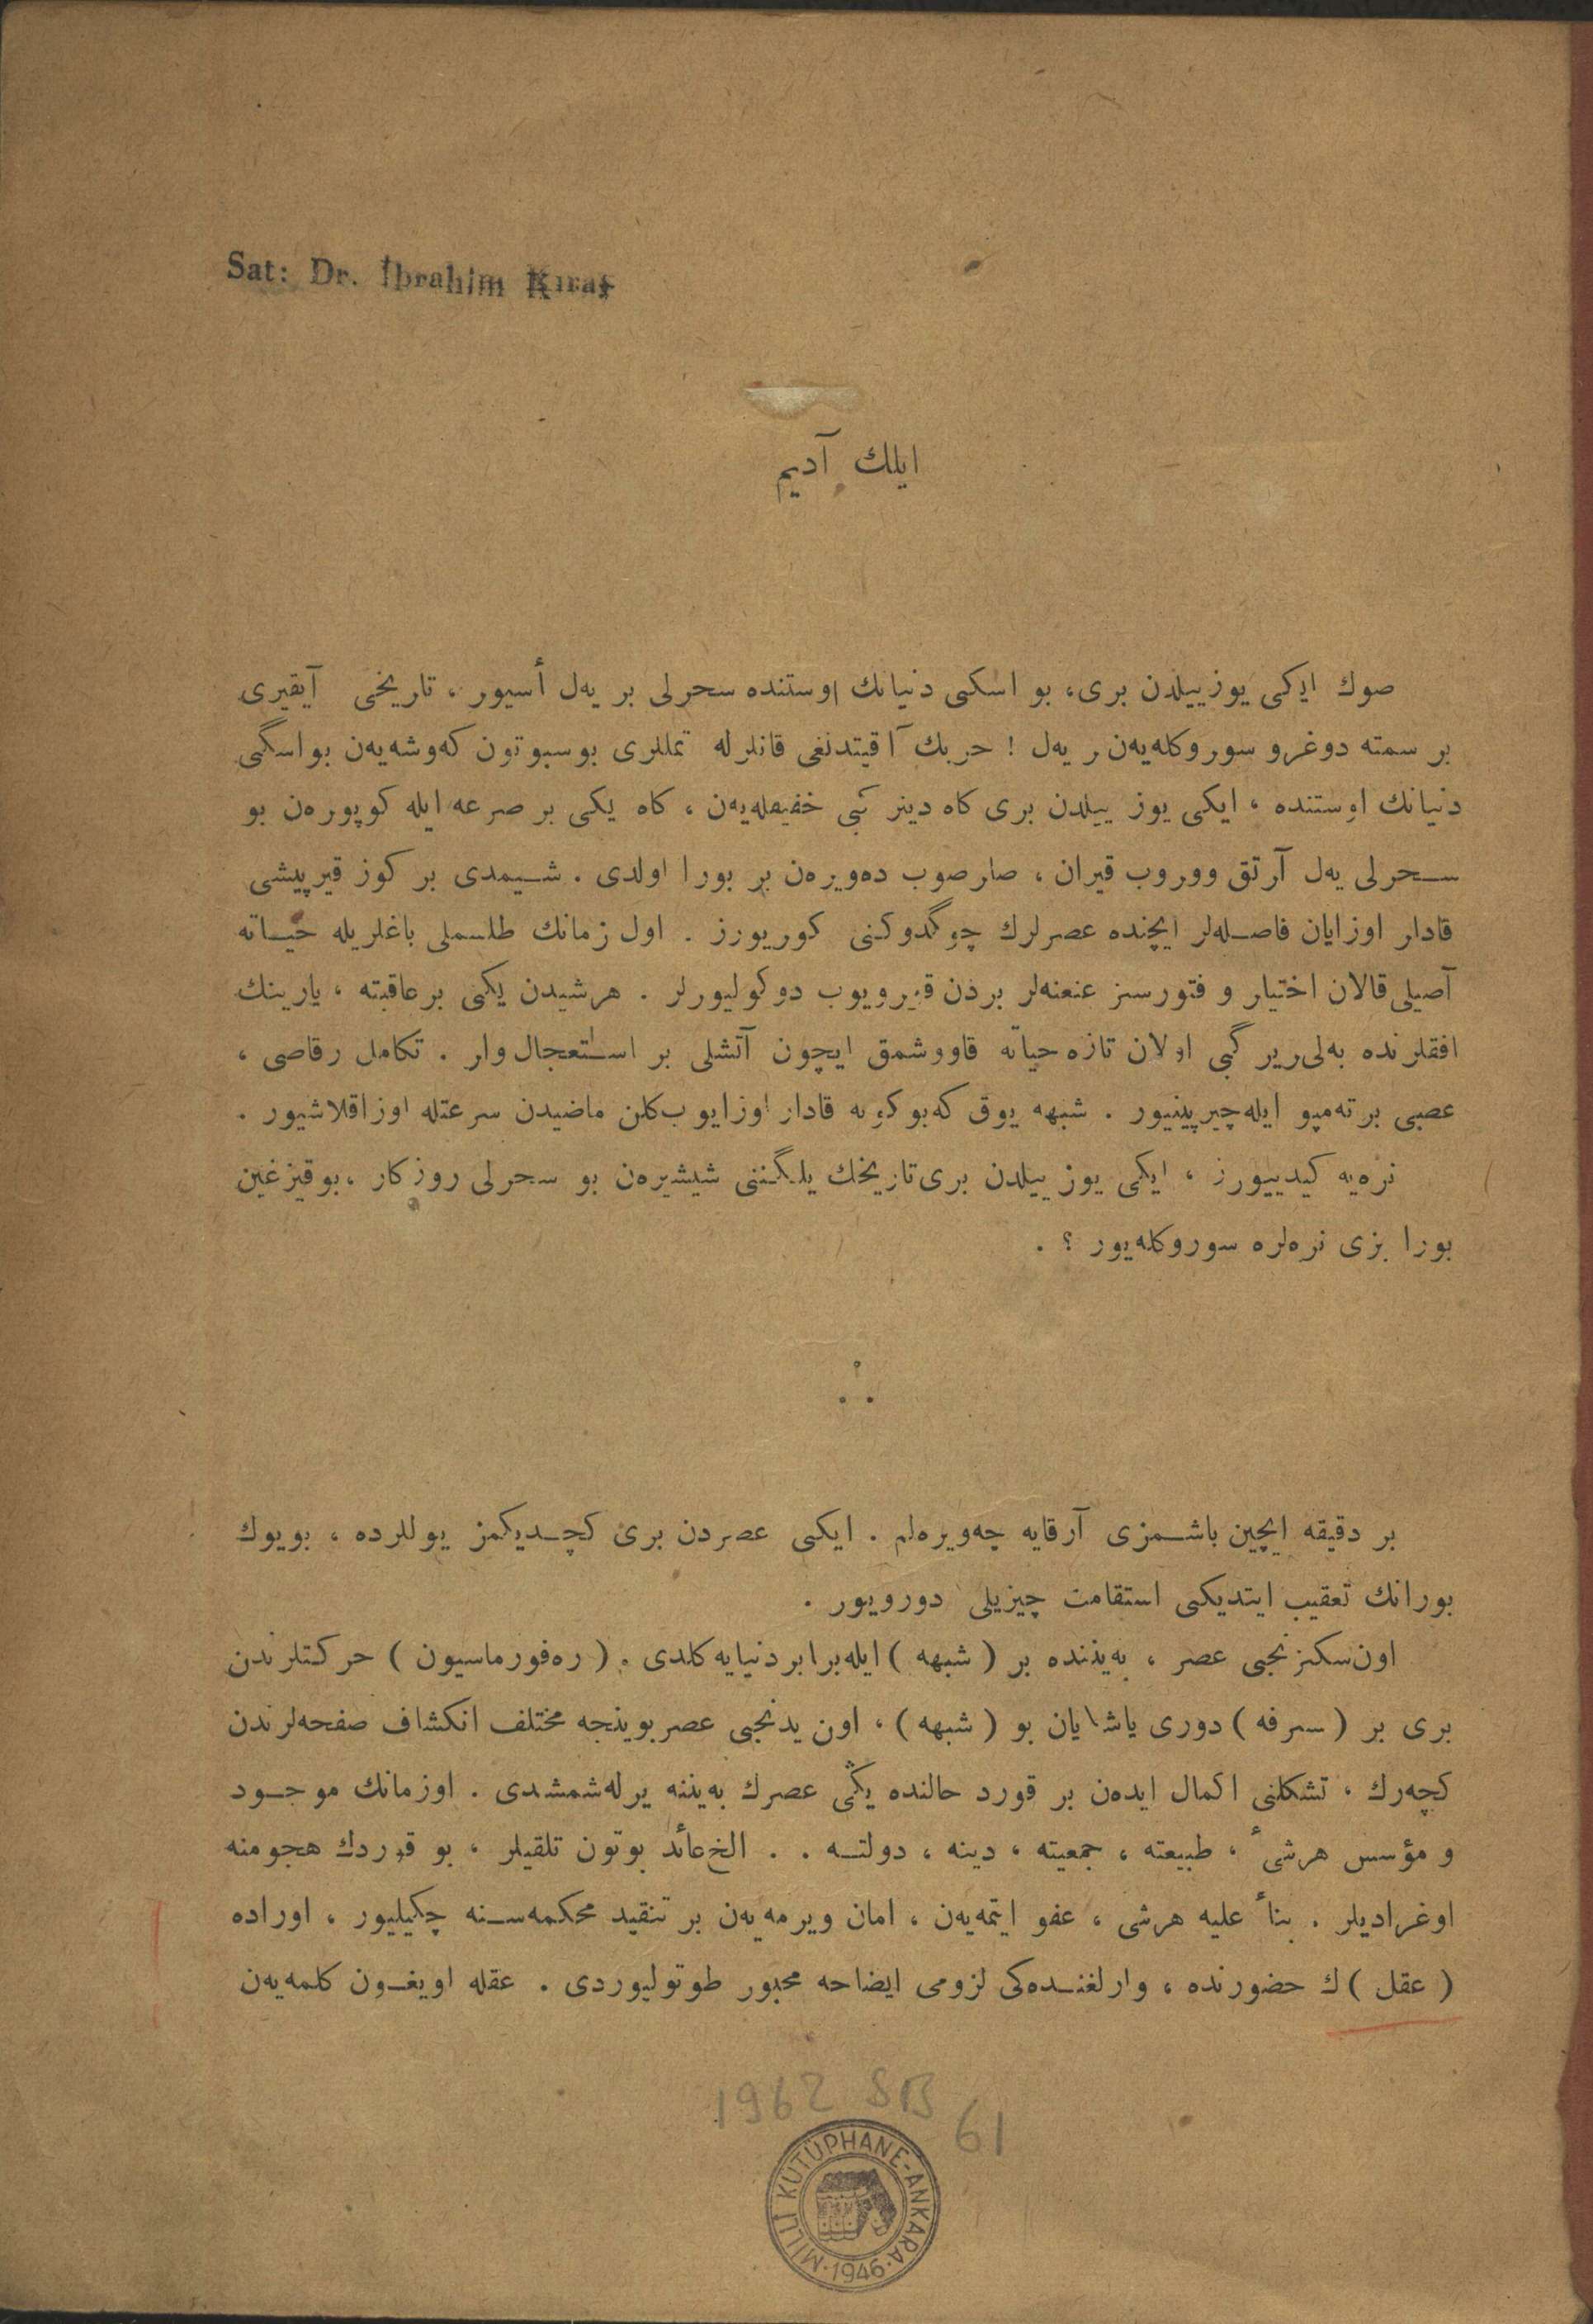 Sat: Dr. İbrahim Kıraş
ایلك آدیم
صوك ایكی یوزییلدن بری، بو اسكی دنیانك اوستنده سحرلی بر یه‌ل أسیور ، تاریخی آیقیری
بر سمته دوغرو سوروكله‌یه‌ن ر یه‌ل ! حربك آقیتدنغی قانلرله تمللری بوسبوتون كه‌وشه‌یه‌ن بواسكی
دنیانك اوستنده ، ایكی یوز ییلدن بری كاه دینر كبی خفیفله‌یه‌ن ، كاه یكی بر صرعه ایله كوپوره‌ن بو
سحرلی یه‌ل آرتق ووروب قیران ، صارصوب ده‌ویره‌ن بر بورا اولدی . شیمدی بر كوز قیرپیشی
قادار اوزایان فاصله‌لر ایچنده عصرلرك چوگدوكنی كوریورز . اول زمانك طلسملی باغلریله حیاته
آصیلی قالان اختیار و فتورسز عنعنه‌لر بردن قیرویوب دوكولیورلر . هرشیدن یكی برعاقبته ، یارینك
افقلرنده به‌لی‌ریر گبی اولان تازه حیاته قاووشمق ایچون آتشلی بر استعجال وار . تكامل رقاصی ،
عصبی بر ته‌مپو ایله چیرپینیور . شبهه یوق كه بو كونه قادار اوزایوب كلن ماضیدن سرعتله اوزاقلاشیور .
نره‌یه كیدییورز ، ایكی یوز ییلدن بری تاریخك یلكننی شیشیره‌ن بو سحرلی روزكار ، بوقیزغین
بورا بزی نره‌لره سوروكله‌یور ؟ .
بر دقیقه ایچین باشمزی آرقایه چه‌ویره‌لم . ایكی عصردن بری كچدیكمز یوللرده ، بویوك
بورانك تعقیب ایتدیكی استقامت چیزیلی دورویور .
اون‌سكزنجی عصر ، به‌یننده بر ( شبهه ) ایله‌برابر دنیایه كلدی . ( ره‌فورماسیون ) حركتلرندن
بری بر ( سرفه ) دوری یاشایان بو ( شبهه ) ، اون یدنجی عصر بوینجه مختلف انكشاف صفحه‌لرندن
كچه‌رك ، تشكلنی اكمال ایده‌ن بر قورد حالنده یڭی عصرك به‌یننه یرله‌شمشدی . اوزمانك موجود
و مؤسس هرشیٔ ، طبیعته ، جمعیته ، دینه ، دولته . . الخ عائد بوتون تلقیلر ، بو قوردك هجومنه
اوغرادیلر . بناءً علیه هرشی ، عفو ایتمه‌یه‌ن ، امان ویرمه‌یه‌ن بر تنقید محكمه‌سنه چكیلیور ، اوراده
( عقل ) ك حضورنده ، وارلغنده‌كی لزومی ایضاحه مجبور طوتولیوردی . عقله اویغون كلمه‌یه‌ن
1962 SB
61
MİLLİ KÜTÜPHANE-ANKARA
1946